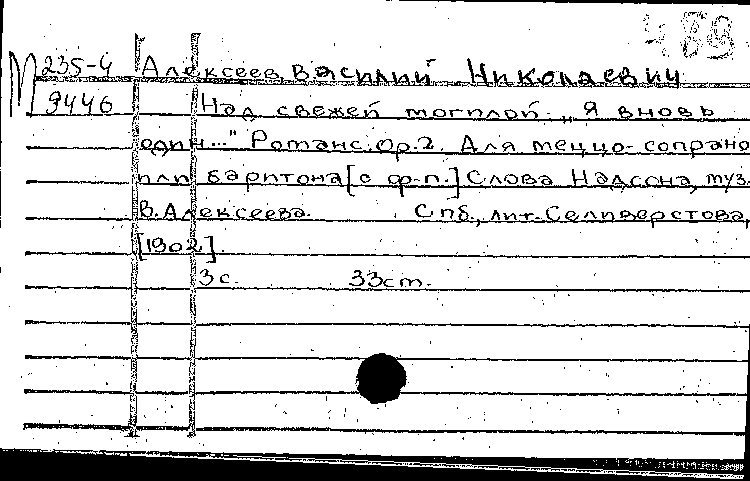 489
М 235-4 Алексеев, Василий Николаевич
9446 Над свежей могилой „Я вновь
один..." Романс. Ор.2. Для меццо-сопрано
или баритона [с ф-п.] Слова Надсона, муз.
В. Алексеева. Спб., лит. Селиверстова,
[1902].
3 с. 33 ст.